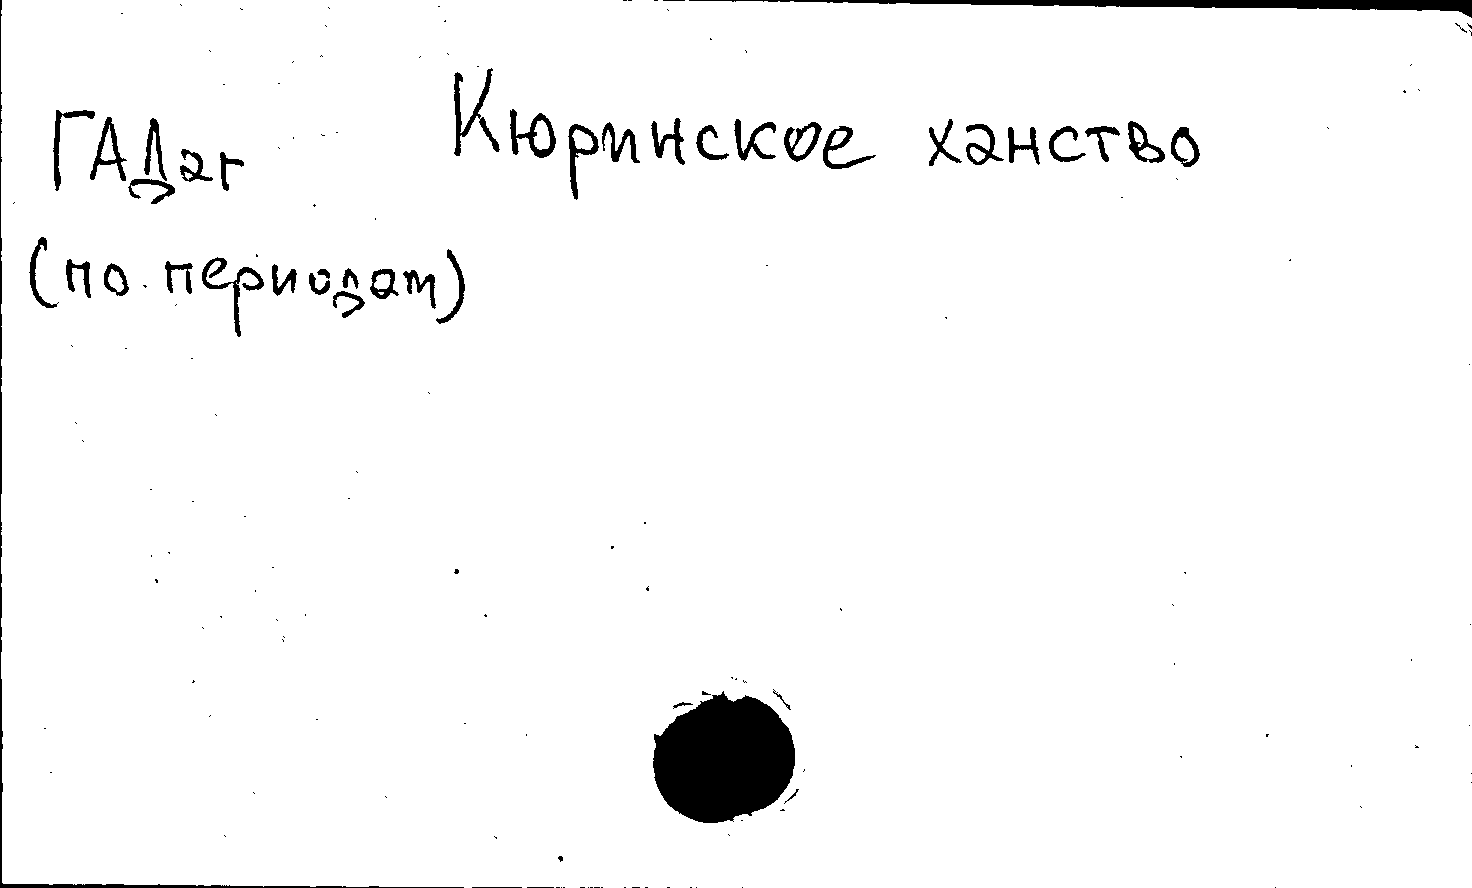 ГАДаг Кюринское ханство
(по периодам)